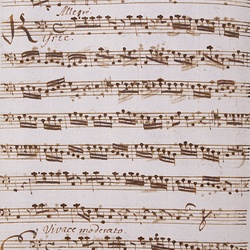 Allegro
Kyrie.
Vivace moderato